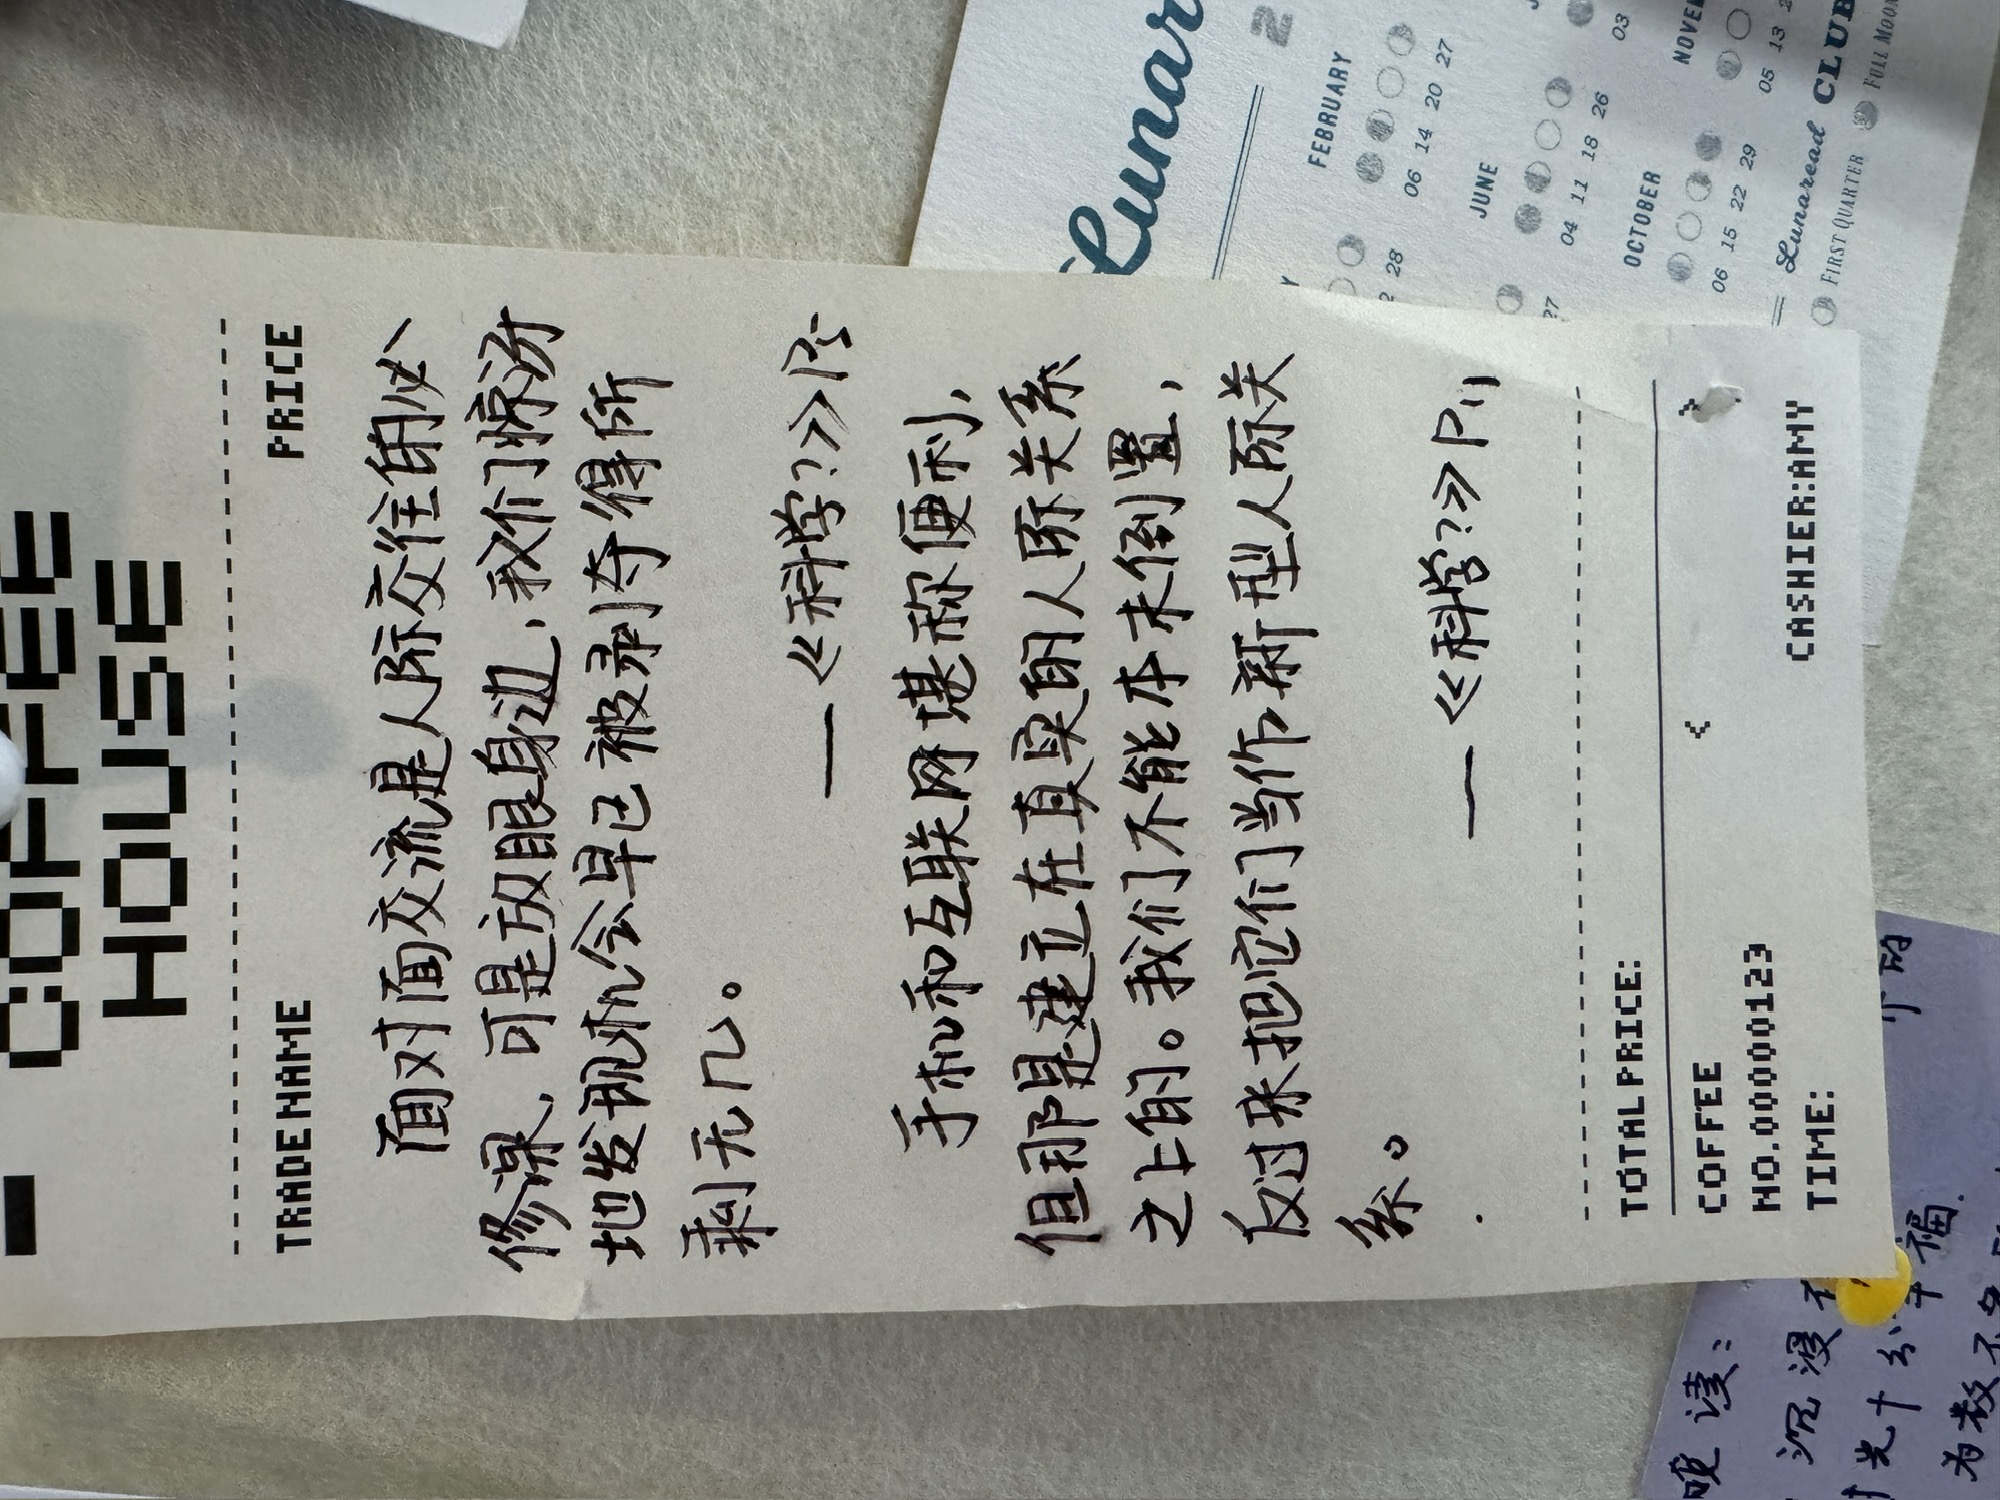 COFFEE
HOUSE
TRADE NAME PRICE
面对面交流是人际交往的必
修课、可是放眼身边,我们惊讶
地发现机会早已被剥夺得所
剩无几。
—《科学?》P
手机和互联网堪称便利,
但那是建立在真实的人际关系
之上的。我们不能本末倒置,
反过来把它们当作新型人际关
系。
—《科学?》P11
TOTAL PRICE:
COFFEE
NO.00000123
TIME:
CASHIER:AMY
Lunar
2
FEBRUARY
06 14 20 27
28
JUNE
04 11 18 26
27
03
OCTOBER
06 15 22 29
05 13
Lunaread CLUB
FIRST QUARTER
FULL MOON
读:
沉浸
光十分幸福.
为